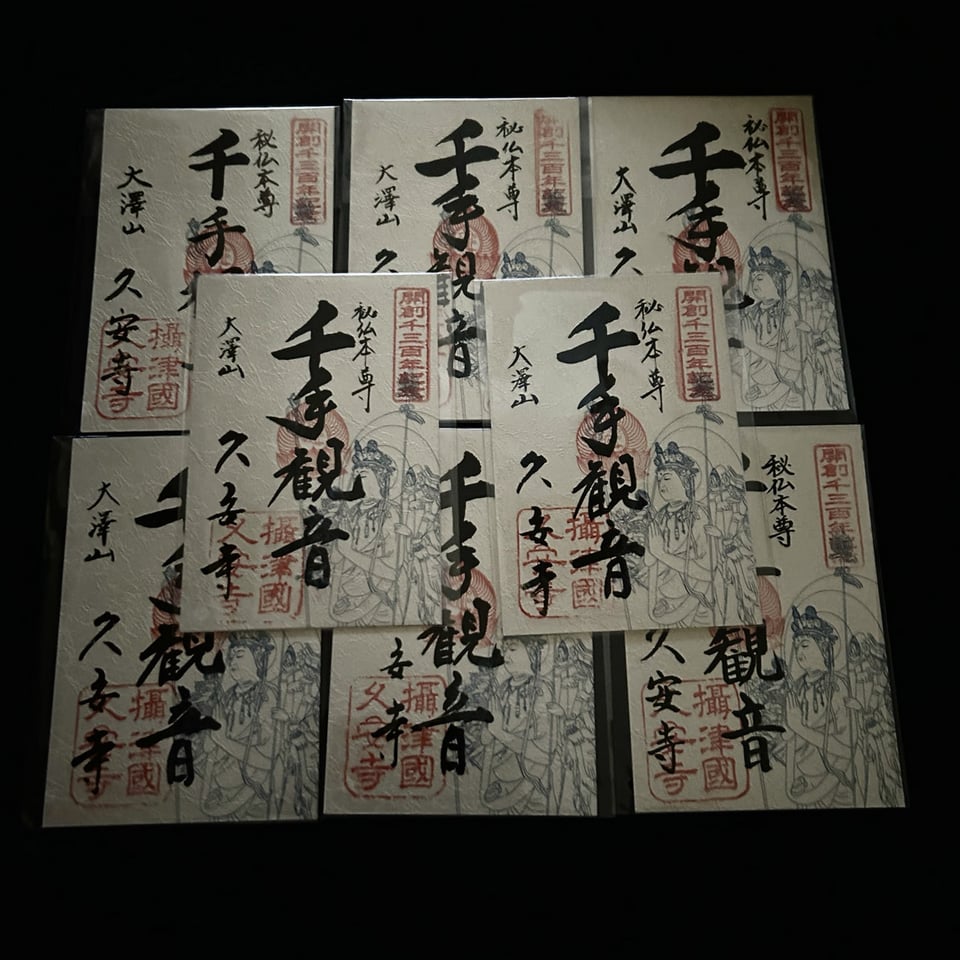 開創千三百年記念
秘仏本尊
千手
大澤山 久安寺
攝津國
開創千三百年記念
秘仏本尊
千手観音
大澤山 久
開創千三百年記念
秘仏本尊
千手観
大澤山 久
開創千三百年記念
秘仏本尊
千手観音
大澤山 久安寺
攝津國
久安寺
開創千三百年記念
秘仏本尊
千手観音
大澤山 久安寺
攝津國
久安寺
観音
大澤山 久安寺
攝津國
久安寺
千手観音
安寺
攝津國
久安寺
開創千三百年記念
秘仏本尊
観音
久安寺
攝津國
久安寺